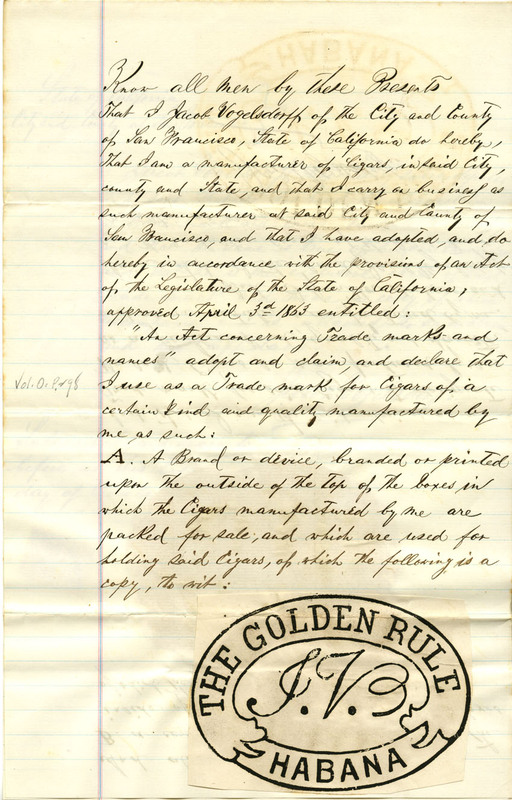 Know all men by these Presents
That I Jacob Vogelsdorff of the City and County
of San Francisco, State of California do hereby,
That I am a manufacturer of Cigars, in said City,
county and State, and that I carry on business as
such manufacturer at said City and County of
San Francisco, and that I have adopted, and do
hereby in accordance with the provisions of an Act
of the Legislature of the State of California,
approved April 3d 1863 entitled:
"An Act concerning Trade marks and
names" adopt and claim, and declare that
I use as a Trade mark for Cigars of a
certain kind and quality manufactured by
me as such:
A. A Brand or device, branded or printed
upon the outside of the top of the boxes in
which the Cigars manufactured by me are
packed for sale, and which are used for
holding said Cigars, of which the following is a
copy, to wit:
Vol. O. P. 498
THE GOLDEN RULE
J.V.
HABANA